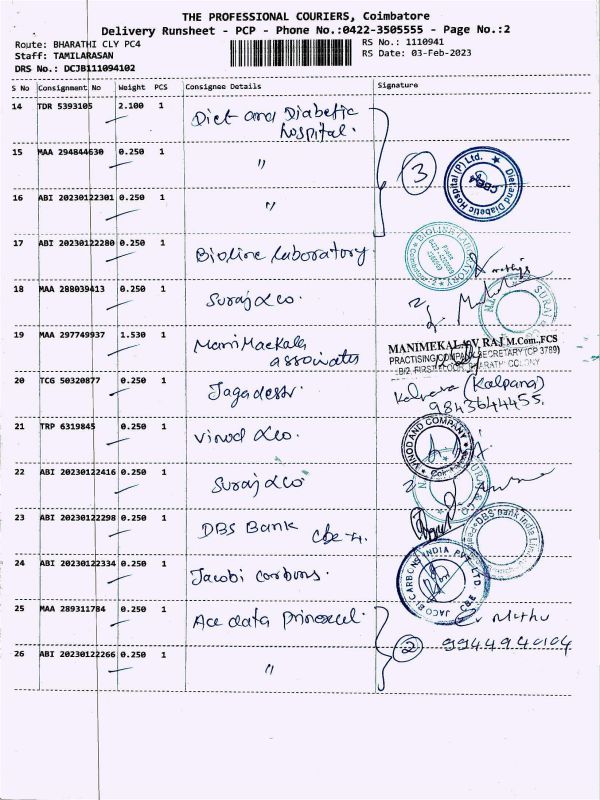 THE PROFESSIONAL COURIERS, Coimbatore
Delivery Runsheet - PCP - Phone No.:0422-3505555 - Page No.:2
Route: BHARATHI CLY PC4
RS No.: 1110941
Staff: TAMILARASAN
RS Date: 03-Feb-2023
DRS No.: DCJB111094102
S No Consignment No Weight PCS Consignee Details Signature
14 TDR 5393105 2.100 1 Diet and Diabetic
hospital.
15 MAA 294844630 0.250 1 "
3
Diet and Diabetic Hospital (P) Ltd.
16 ABI 20230122301 0.250 1 "
17 ABI 20230122280 0.250 1 Bioline Laboratory
BIOLINE LABORATORY
18 MAA 288039413 0.250 1 Suraj & co.
19 MAA 297749937 1.530 1 ManiMackala
associates
MANIMEKALAI V. RAJ M.Com.,FCS
PRACTISING COMPANY SECRETARY (CP 3789)
20 TCG 50320877 0.250 1 Jagadesh.
(Kalpana)
9843644455.
21 TRP 6319845 0.250 1 Vinod & co.
VINOD AND COMPANY
22 ABI 20230122416 0.250 1 Suraj & co
SURAJ & CO
23 ABI 20230122298 0.250 1 DBS Bank
DBS Bank India Limited
24 ABI 20230122334 0.250 1 Jacobi carbons.
JACOBI CARBONS INDIA PVT. LTD.
25 MAA 289311784 0.250 1 Ace data
Muthu
2
26 ABI 20230122266 0.250 1 "